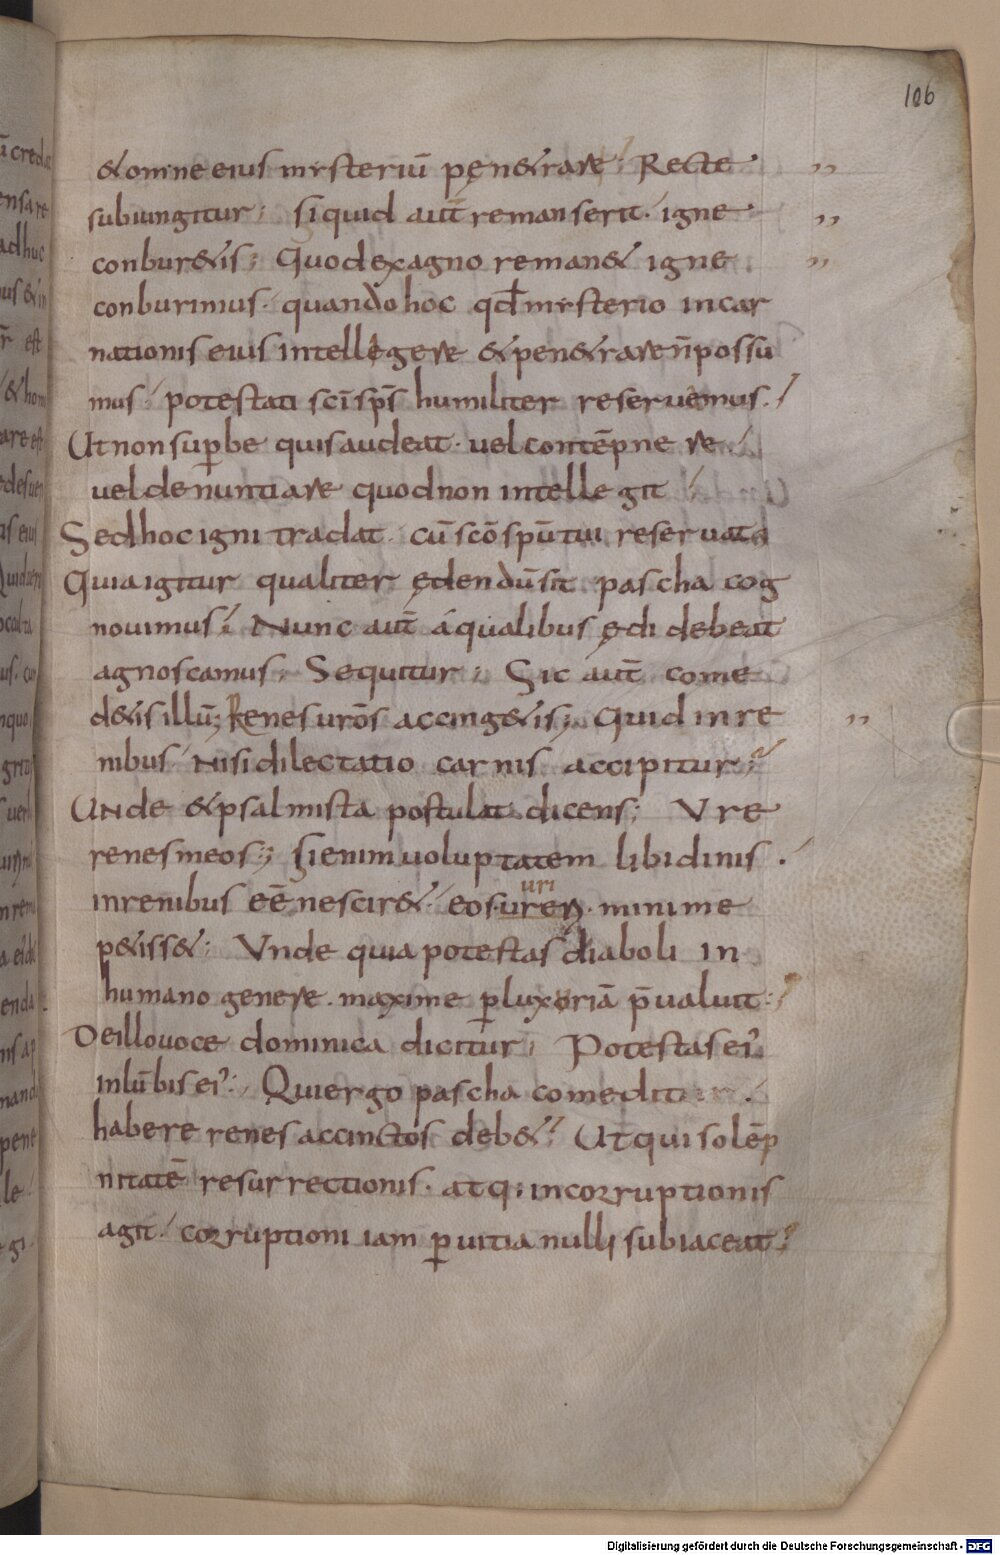 106
&omne eius mysteriū pęn&rare; Recte
subiungitur; siquid aut̄ remanserit. igne
conbur&is; Quodexagno reman& igne
conburimus. quandohoc qđ mysterio incar
nationis eius intellegere &pen&raren̄possu
mus. potestati sc̄i sp̄s humiliter reseruemus.
Utnonsuꝑbe quisaudeat. uel contēpnere.
ueldenuntiare quodnon intellegit
Sedhocigni tradat. cū sc̄o spūtui reseruat
Quiaigitur qualiter ędendūsit pascha cog
nouimus; Nunc aut̄ áqualibus ędi debeat
agnoscamus; Sequitur; Sic aut̄ come
d&isillū; Renes ur̄os accing&is; Quid inre
nibus nisidilectatio carnis accipitur;
Unde &psalmista postulat dicens; Vre
renesmeos; sienimuoluptatem libidinis.
inrenibus eē nescir&. eosuren. minime
uri
p&iss&; Vnde quia potestas diaboli in
humano genere. maxime ꝑluxoriā p̄ualuit;
Deillouoce dominica dicitur; Potestas ei'
inlūbis ei'; Quiergo pascha comedit
habere renes accinctos deb&; Ut qui solēp
nitatē resurrectionis. atq; incorruptionis
agit. corruptioni iam ꝑuitia nulli subiaceat;
Digitalisierung gefördert durch die Deutsche Forschungsgemeinschaft - DFG